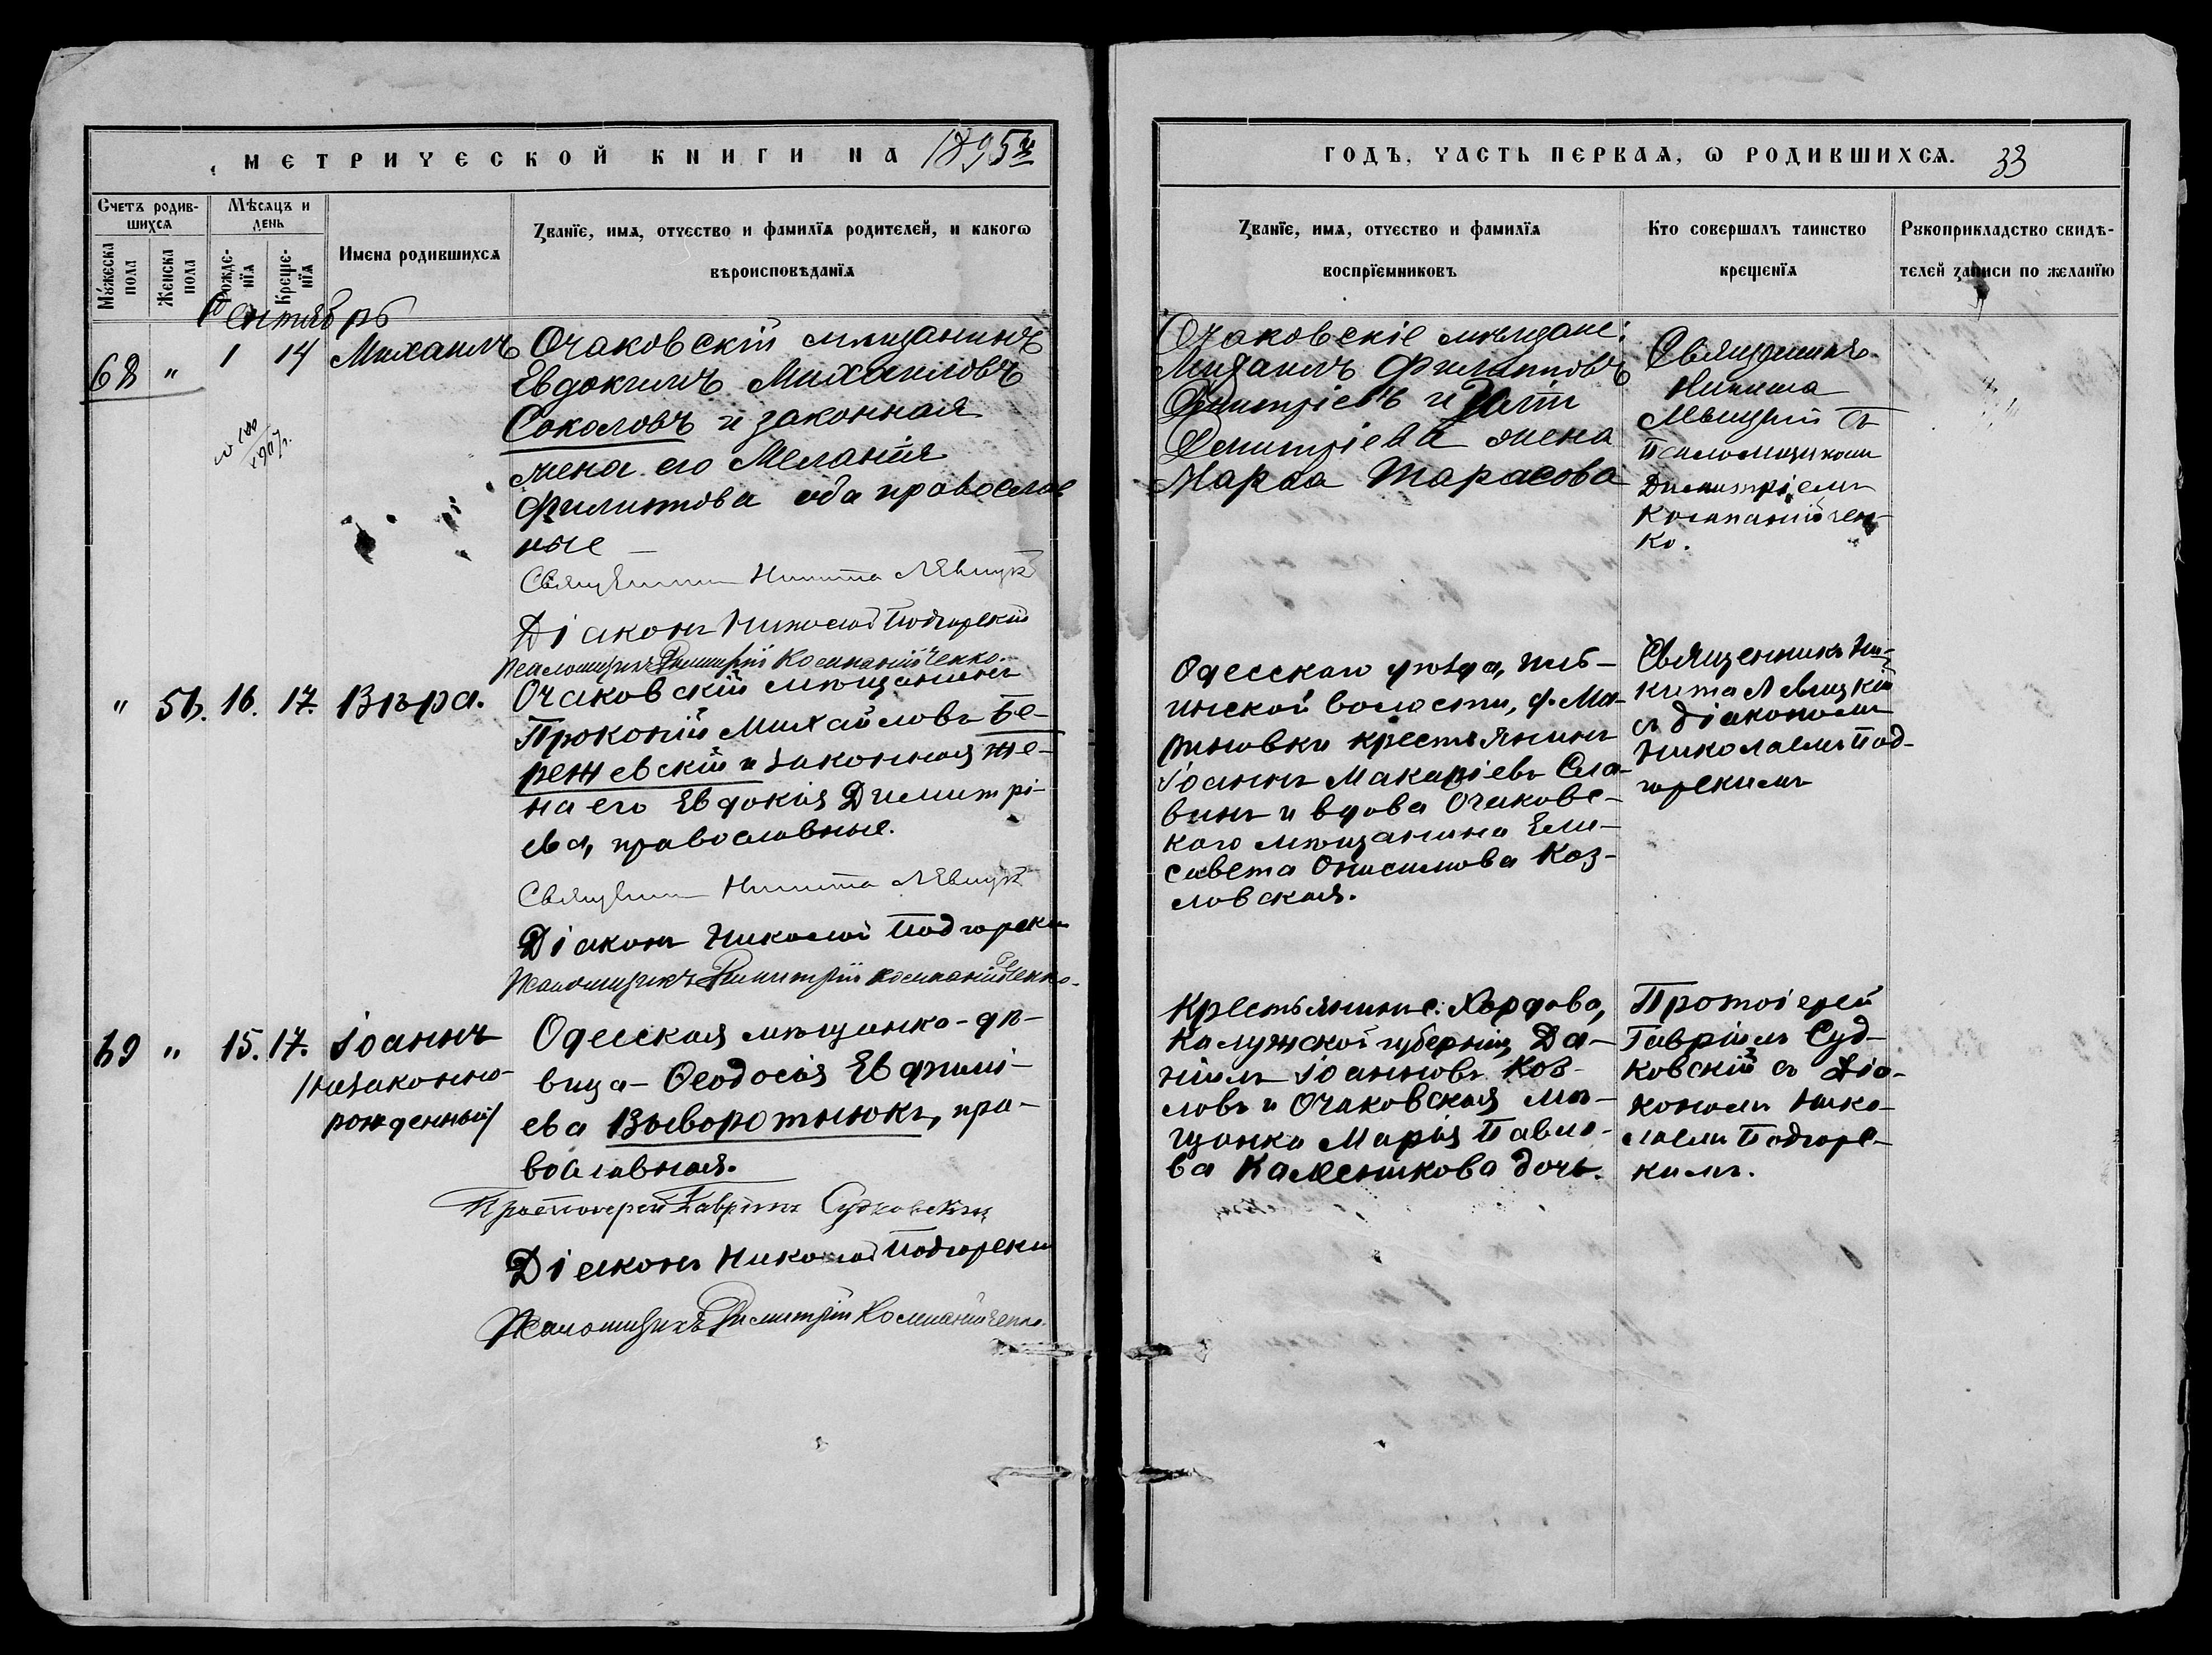 МЕТРИЧЕСКОЙ КНИГИ НА 1895й
ГОДЪ, ЧАСТЬ ПЕРВАЯ, Ѡ РОДИВШИХСЯ. 33
Счетъ родив-
шихся
Мѣсяцъ и
день
Мужеска
пола
Женска
пола
Рожде-
нїя
Креще-
нїя
Имена родившихся
Званїе, имя, отчество и фамилїя родителей, и какогѡ
вѣроисповѣданїя
Званїе, имя, отчество и фамилїя
воспрїемниковъ
Кто совершалъ таинство
крещенїя
Рукоприкладство свидѣ-
телей записи по желанїю
Сентябрь
68 " 1 14 Михаилъ
Очаковскій мѣщанинъ
Евдокимъ Михаиловъ
Соколовъ и законная
жена его Меланія
Филиппова оба православ
ные
Священникъ Никита Лѣвицкі
Діаконъ Николай Подгорскій
Псаломщикъ Димитрій Компанійченко.
Очаковскіе мѣщане:
Михаилъ Филипповъ
Димитріевъ и
Димитріева жена
Марѳа Тарасова
Священникъ
Никита
Лѣвицкій съ
Псаломщикомъ
Димитріемъ
Компанійчен-
ко.
" 56. 16. 17. Вѣра.
Очаковскій мѣщанинъ
Прокопій Михайловъ Бе-
режевскій и законная же-
на его Евдокія Димитрі-
ева, православные.
Священникъ Никита Лѣвицкі
Діаконъ Николай Подгорскі
Псаломщикъ Димитрій Компанійченко.
Одесскаго уѣзда,
инской волости, д. Ма-
риновки крестьянинъ
Іоаннъ Макаріевъ Сла-
винъ и вдова Очаковс-
кого мѣщанина Ели-
савета Онисимова Коз-
ловская.
Священникъ Ни-
кита Лѣвицкій
съ діакономъ
Николаемъ Под-
горскимъ
69 " 15. 17. Іоаннъ
/незаконно-
рожденный/
Одесская мѣщанка-дѣ-
вица-Ѳеодосія Евфимі-
ева Выворотнюкъ, пра-
вославная.
Протоіерей Гавріилъ Судковскій
Діаконъ Николай Подгорскі
Псаломщикъ Димитрій Компанійченко.
Крестьянинъ с. Хордова,
Калужской губерніи, Да-
ніилъ Іоанновъ Коз-
ловъ и Очаковская мѣ-
щанка Марія Павло-
ва Каменикова дочь.
Протоіерей
Гавріилъ Суд-
ковскій съ діа-
кономъ Нико-
лаемъ Подгорс-
кимъ.